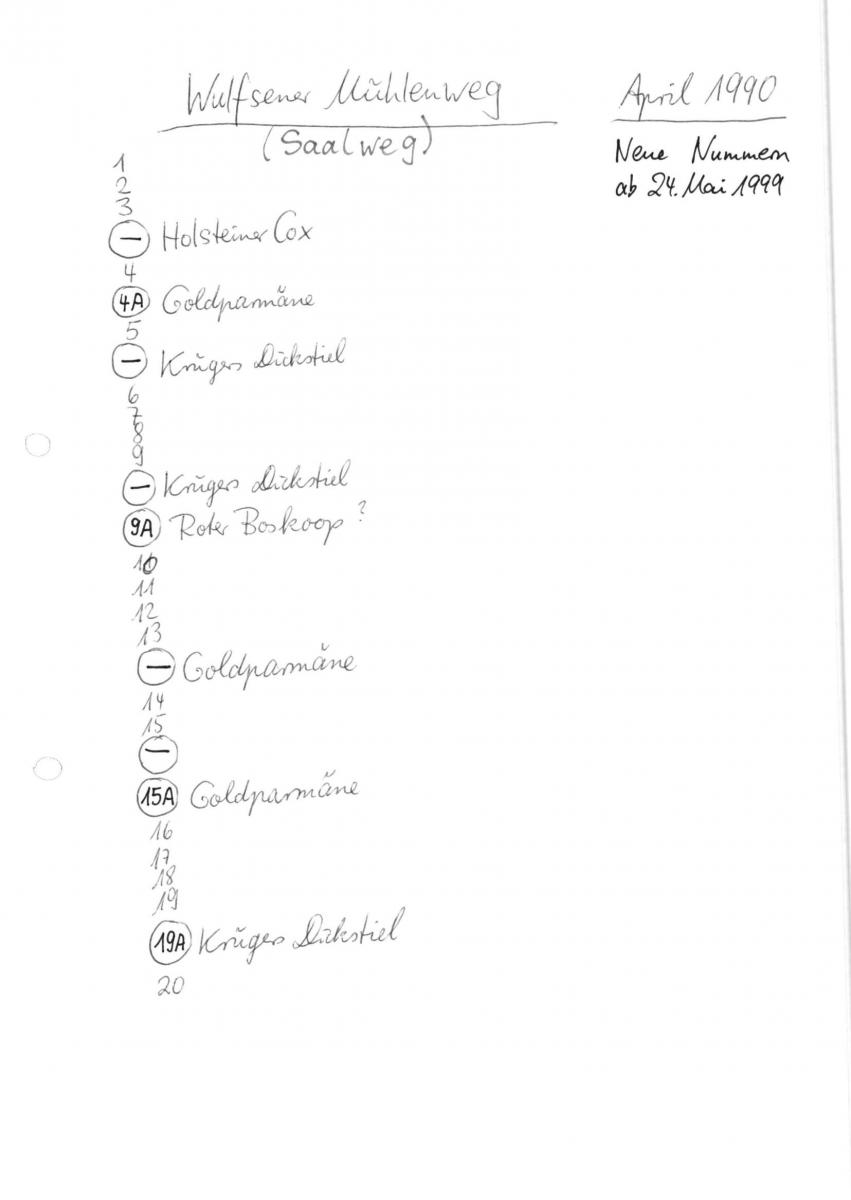 Wulfsener Mühlenweg April 1990
(Saalweg)
Neue Nummern
ab 24. Mai 1999
1
2
3
– Holsteiner Cox
4
4A Goldparmäne
5
– Krügers Dickstiel
6
7
8
9
– Krügers Dickstiel
9A Roter Boskoop ?
10
11
12
13
– Goldparmäne
14
15
–
15A Goldparmäne
16
17
18
19
19A Krügers Dickstiel
20